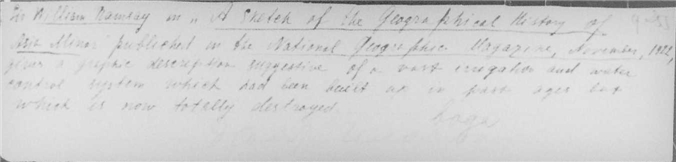 Sir William Ramsay in "A Sketch of the Geographical History of
Asia Minor" published in the National Geographic Magazine, November, 1922,
gives a prefaic description suggestive of a vast irrigation and water
control system which had been built up in past ages but
which is now totally destroyed.